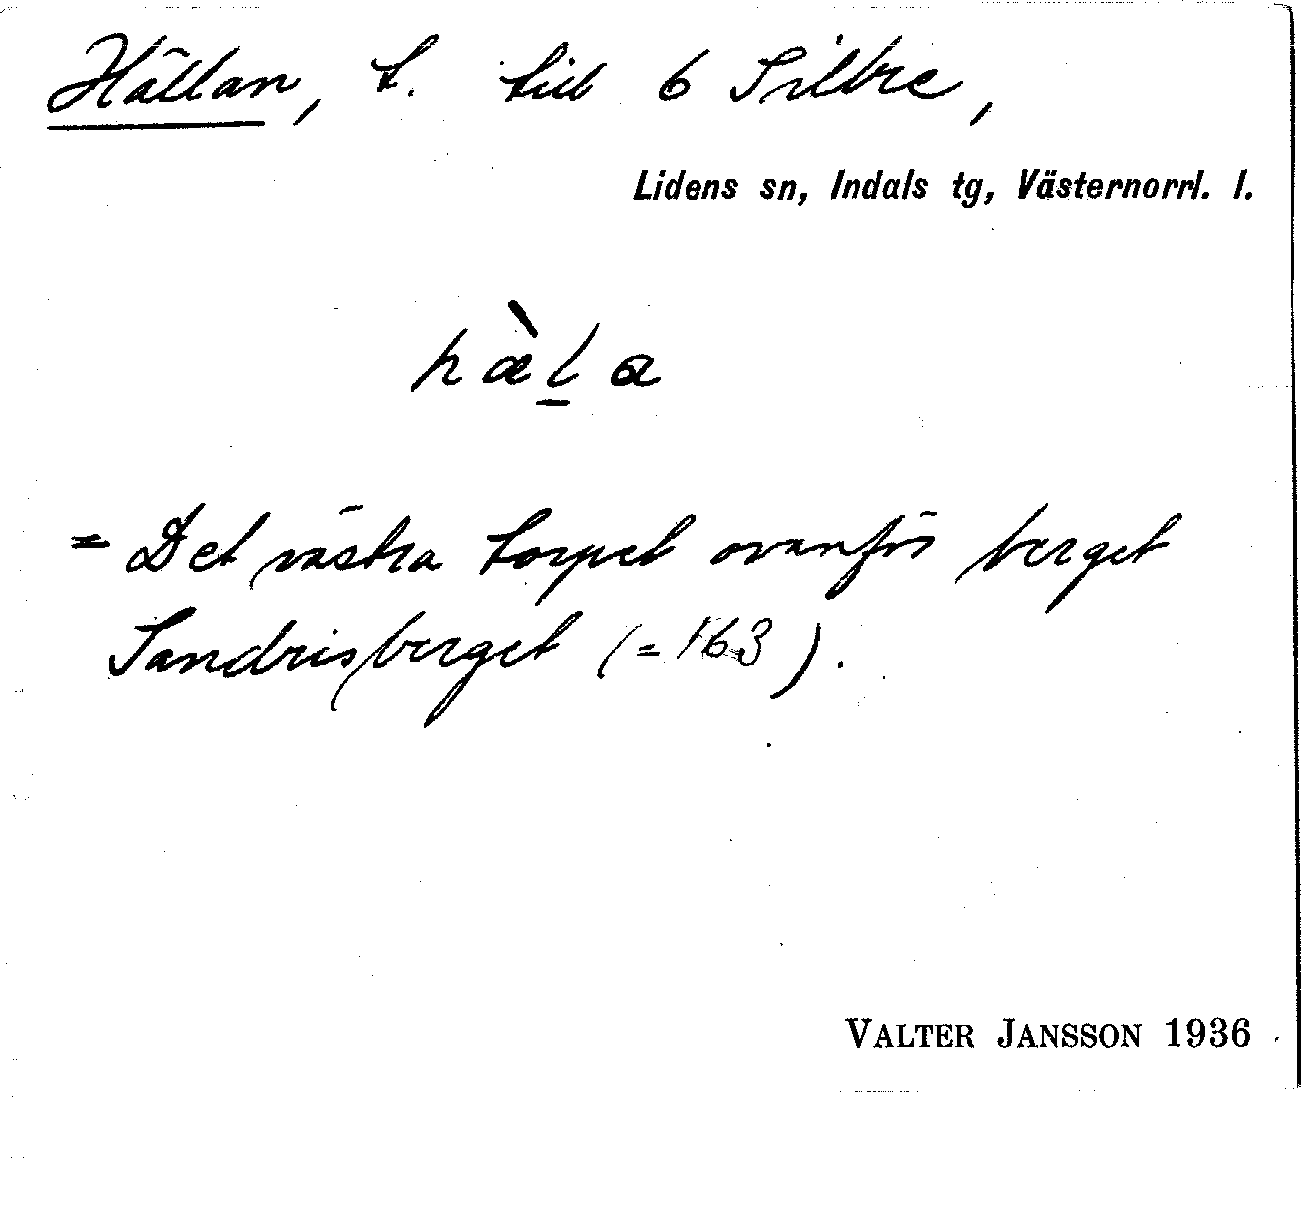 Hällan, t. till 6 Sillre,
Lidens sn, Indals tg, Västernorrl. l.
hæ̀l̠a
= Det västra torpet ovanför berget
Sandrisberget (= 163).
VALTER JANSSON 1936